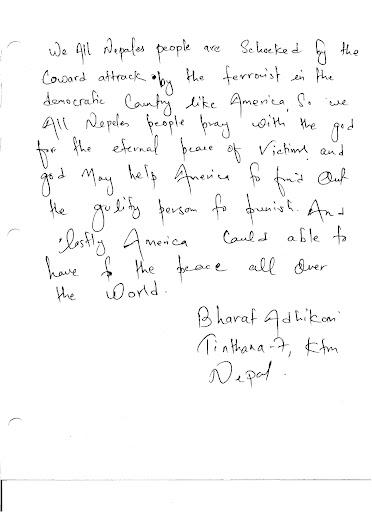 We All Nepales people are Schocked by the
Coward attrack by the terrorist in the
democratic Country like America, So we
All Nepeles people pray with the god
for the eternal peace of Victims and
god May help America to find Out
the guility person to punish. And
lastly America Could able to
have the peace all Over
the World.
Bharat Adhikari
Tinthana-7, Ktm
Nepal.